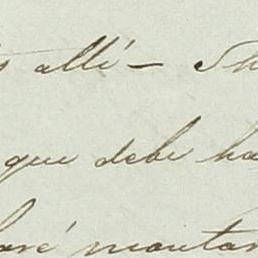 allí— 
que debe ha
aré montar